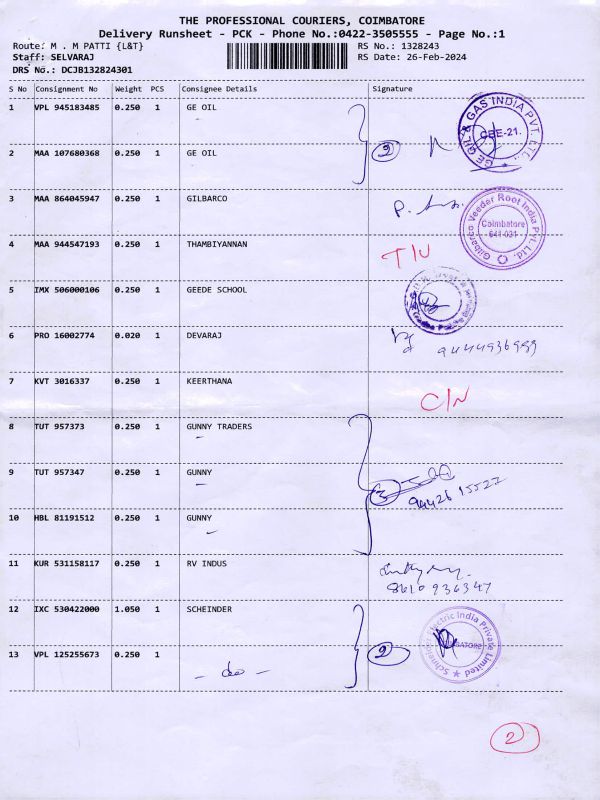 THE PROFESSIONAL COURIERS, COIMBATORE
Delivery Runsheet - PCK - Phone No.:0422-3505555 - Page No.:1
Route: M . M PATTI {L&T}
RS No.: 1328243
Staff: SELVARAJ
RS Date: 26-Feb-2024
DRS No.: DCJB132824301
S No Consignment No Weight PCS Consignee Details Signature
1 VPL 945183485 0.250 1 GE OIL
GE OIL & GAS INDIA PVT. LTD.,
CBE-21.
2 MAA 107680368 0.250 1 GE OIL
2
3 MAA 864045947 0.250 1 GILBARCO
Gilbarco Veeder Root India Pvt. Ltd.
Coimbatore
641-021
4 MAA 944547193 0.250 1 THAMBIYANNAN
5 IMX 506000106 0.250 1 GEEDE SCHOOL
6 PRO 16002774 0.020 1 DEVARAJ
9444936999
7 KVT 3016337 0.250 1 KEERTHANA
C/N
8 TUT 957373 0.250 1 GUNNY TRADERS
9 TUT 957347 0.250 1 GUNNY
3
9442615522
10 HBL 81191512 0.250 1 GUNNY
11 KUR 531158117 0.250 1 RV INDUS
8610936347
12 IXC 530422000 1.050 1 SCHEINDER
Schneider Electric India Private Limited
COIMBATORE
13 VPL 125255673 0.250 1
2
- do -
2